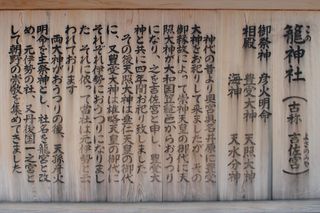 籠神社(古称 吉佐宮)
御祭神 彦火明命
相殿 豊受大神 天照大神
海神 天水分神
神代の昔より奥宮真名井原に豊受
大神をお祀りして来ましたが、その
御縁故によって崇神天皇の御代に天
照大神が大和国笠縫邑からおうつり
になり、之を吉佐宮と申し、豊受大
神と共に四年間お祀り致しました。
その後天照大神は垂仁天皇の御代
に、又豊受大神は雄略天皇の御代に
それぞれ伊勢におうつりになりまし
た。それに依って当社は元伊勢と云
われております。
両大神がおうつりの後、天孫彦火
明命を主祭神とし、社名を籠宮と改
め、元伊勢の社、又丹後国一之宮と
して朝野の崇敬を集めてきました